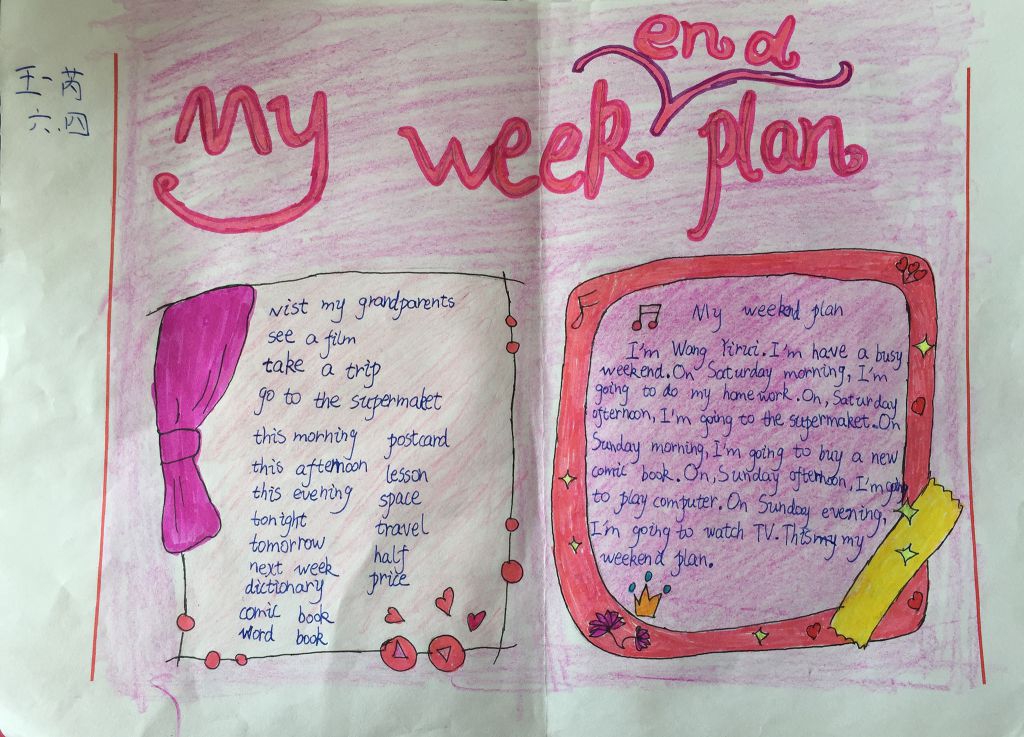 王一芮
六.四
My weekend plan
Vist my grandparents
see a film
take a trip
go to the supermaket
this morning
this afternoon
this evening
tonight
tomorrow
next week
dictionary
comic book
word book
postcard
lesson
space
travel
half
price
My weekend plan
I'm Wang Yirui. I'm have a busy
weekend. On Saturday morning, I'm
going to do my homework. On, Saturday
afternoon, I'm going to the supermaket. On
Sunday morning, I'm going to buy a new
comic book. On, Sunday afternoon, I'm going
to play computer. On Sunday evening,
I'm going to watch TV. This my my
weekend plan.